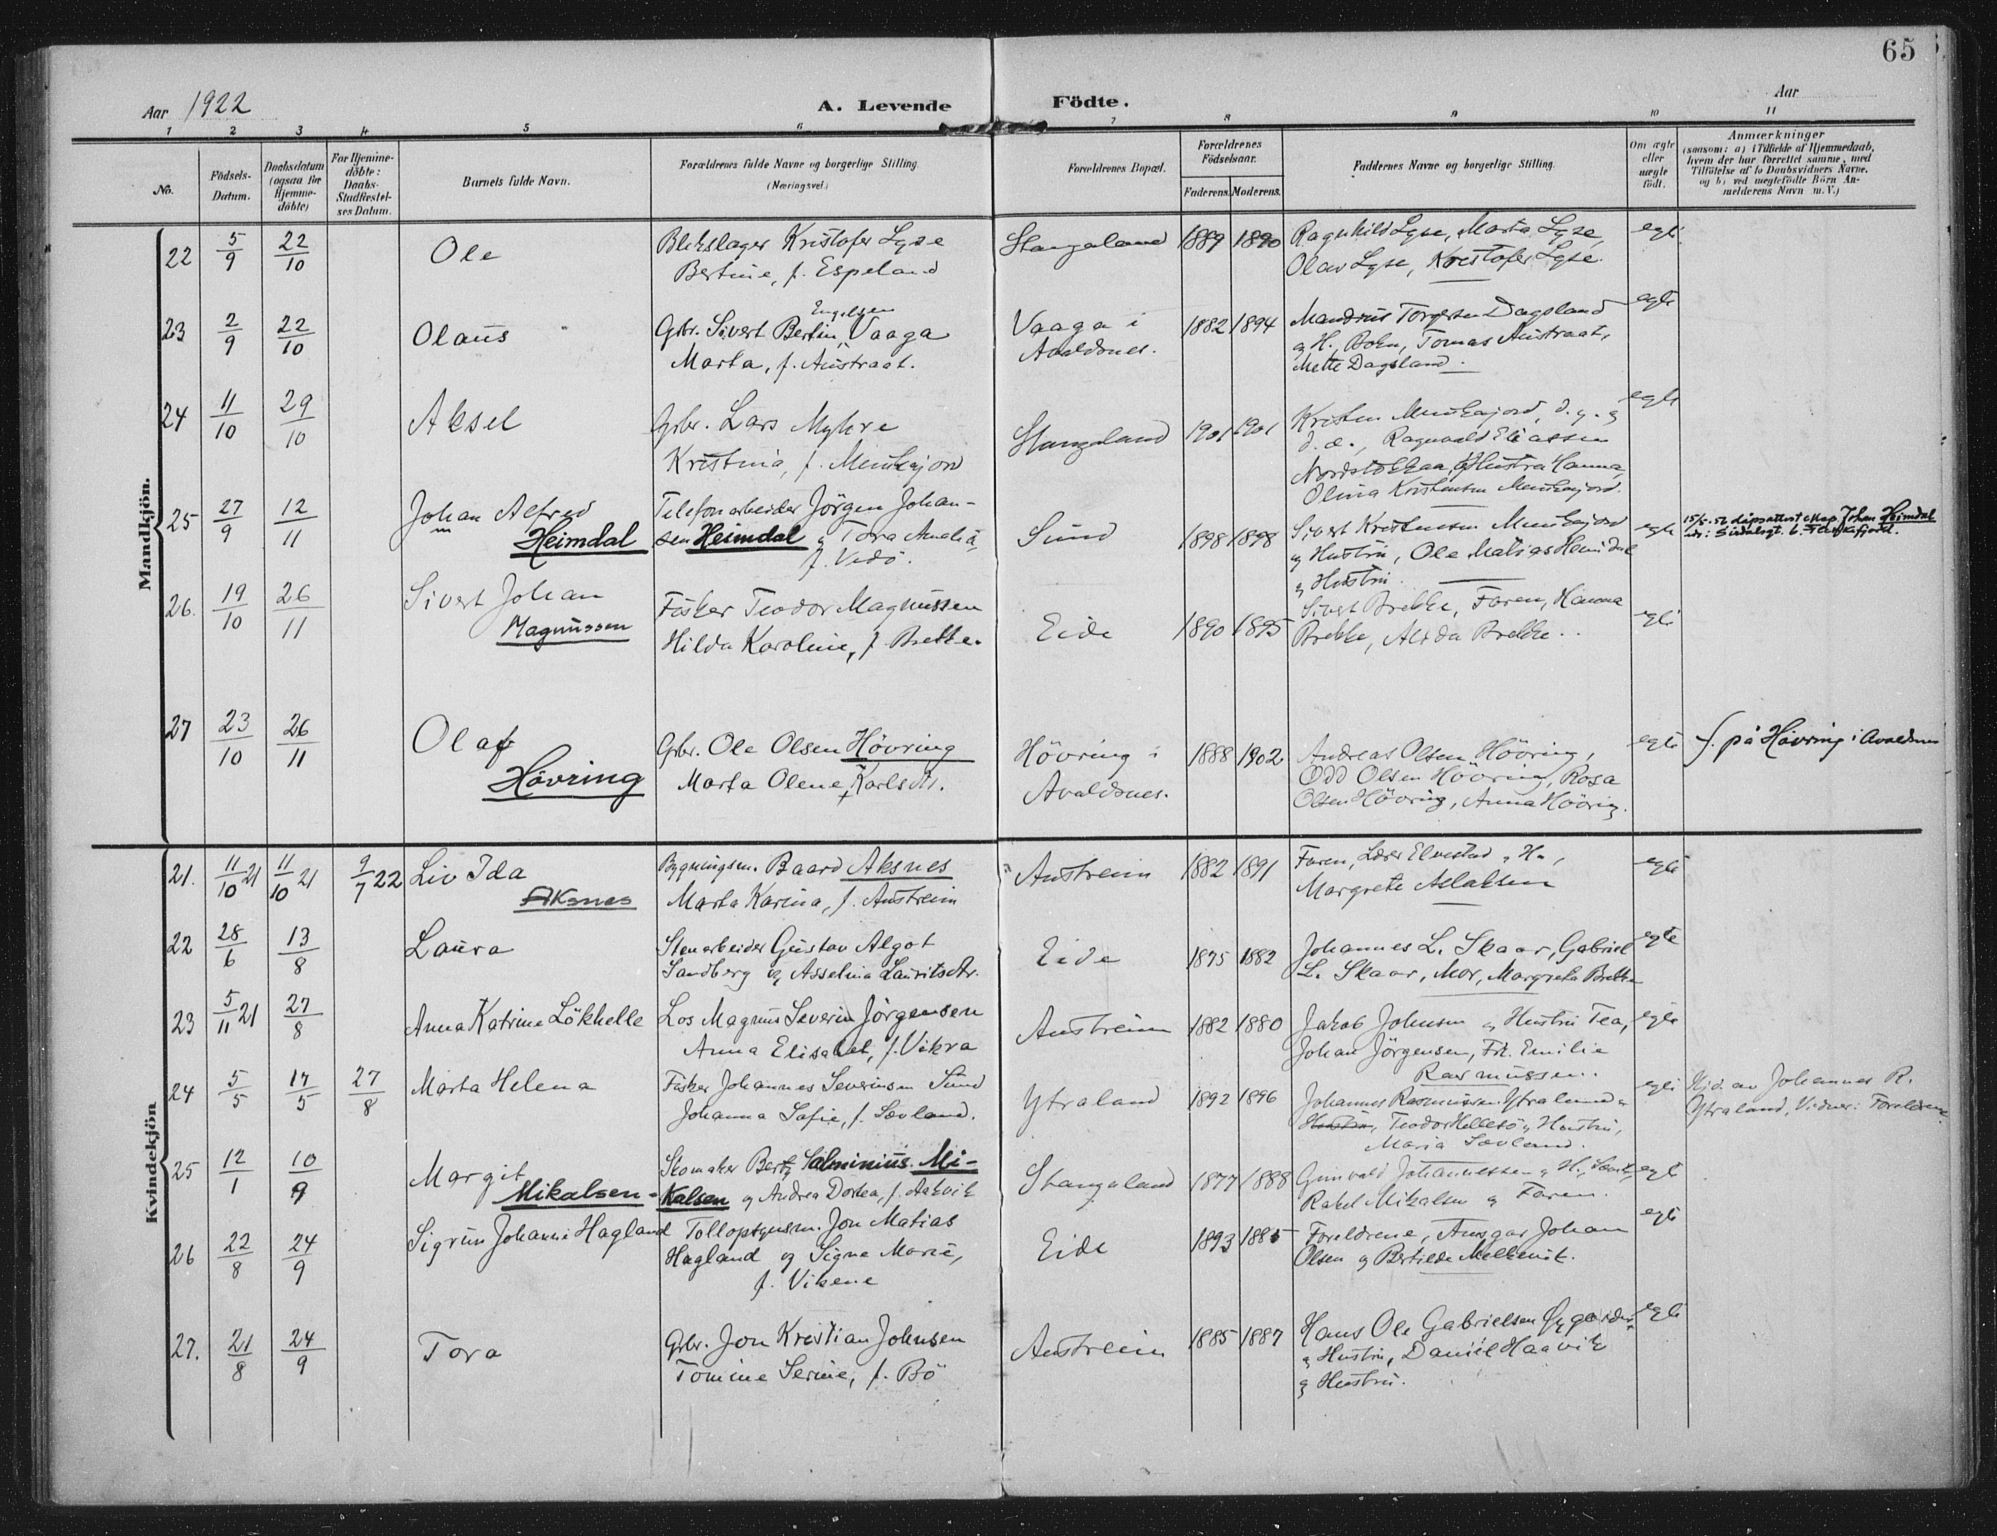 65
Aar 1922
A. Levende Födte.
Aar
1 2 3 4 5 6 7 8 9 10 11
No.
Födsels-Datum.
Daabsdatum (ogsaa for Hjemme-döbte)
For Hjemme-döbte: Daabs-Stadfæstel-ses Datum.
Barnets fulde Navn.
Forældrenes fulde Navne og borgerlige Stilling. (Næringsvei.)
Forældrenes Bopæl.
Forældrenes Födselsaar.
Faderens. Moderens.
Faddernes Navne og borgerlige Stilling.
Om ægte eller uægte födt.
Anmærkninger
(saasom: a) i Tilfælde af Hjemmedaab, hvem der har forrettet samme, med Tilföielse af to Daabsvidners Navne. og b) ved uægtefödte Börn An-melderens Navn m. V.)
Mandkjön.
22 5/9 22/10 Ole
Blikslager Kristofer Lyse
Bertine, f. Espeland
Stangaland 1889 1890
Ragnhild Lyse, Marta Lyse,
Olav Lyse, Kristofer Lyse.
egte
23 2/9 22/10 Olaus
Gbr. Sivert Bertin Engelsen Vaaga
Marta, f. Austraat.
Vaaga i
Avaldsnes.
1882 1894
Mandrus Torgersen Dagsland
og H. Boen, Tomas Austraat,
Mette Dagsland.
egte
24 11/10 29/10 Aksel
Gbr. Lars Myhre
Kristina, f. Munkajord
Stangaland 1901 1901
Kristen Munkajord, d. y. og
d. æ., Ragnvald Eliassen
Nordstokkaa, og Hustru Hanna,
Olina Kristensen Munkajord.
egte
25 27/9 12/11 Johan Alfred
Heimdal
Telefonarbeider Jörgen Johan-
sen Heimdal og Tora Amalia,
f. Vedö.
Sund 1898 1898
Sivert Kristensen Munkajord
og Hustru, Ole Matias Heimdal
og Hustru.
egte
15/5-52 dåpsattest Johan Heimdal
26. 19/10 26/11 Sivert Johan
Magnussen
Fisker Teodor Magnussen
Hilda Karoline, f. Brekke.
Eide 1890 1895
Sivert Brekke, Faren, Hanna
Brekke, Alida Brekke.
egte
27 23/10 26/11 Olaf
Hövring
Gbr. Ole Olsen Hövring
Marta Olene, f. Karlsdtr.
Hövring i
Avaldsnes.
1888 1902
Andreas Olsen Hövring,
Odd Olsen Hövring, Rosa
Olsen Hövring, Anna Hövring.
egte
f. på Hövring i Avaldsnes
Kvindekjön
21. 11/10 21 11/10 21 9/7 22 Liv Ida
Aksnes
Bygningsm. Baard Aksnes
Marta Karina, f. Austreim
Austreim 1882 1891
Faren, Lærer Elvestad og H.,
Margrete Aslaksen
egte
22 28/6 13/8 Laura
Stenarbeider Gustav Algot
Sandberg og Asselina Lauritsdtr.
Eide 1875 1882
Johannes L. Skaar, Gabriel
L. Skaar, Mor, Margreta Brekke
egte
23 5/11 21 27/8 Anna Katrine Lökhelle
Los Magnus Severin Jörgensen
Anna Elisabet, f. Vikra
Austreim 1882 1880
Jakob Johnsen og Hustru Tea,
Johan Jörgensen, Frk. Emilie
Rasmussen.
egte
24 5/5 17/5 27/8 Marta Helena
Fisker Johannes Severinsen Sund
Johanna Sofie, f. Sævland.
Ytraland 1892 1896
Johannes Rasmussen Ytraland og
Hustru, Teodor Hellesö og Hustru,
Maria Sævland.
egte
Hjd. av Johannes R.
Ytraland, Vidner: Foreldrene
25 12/1 10/9 Margit
Mikalsen
Skomaker Berty Salminius Mi-
kalsen og Andrea Dortea, f. Aakvik
Stangaland 1877 1888
Gunvald Johannessen og H.,
Rakel Mikalsen og Faren.
egte
26 22/8 24/9 Sigrun Johanne Hagland
Tollopsynsm. Jon Matias
Hagland og Signe Marie,
f. Vikene
Eide 1893 1885
Foreldrene, Ansgar Johan
Olsen og Bertilde Melkevik.
egte
27. 21/8 24/9 Tora
Gbr. Jon Kristian Johnsen
Tomine Serine, f. Bö
Austreim 1885 1887
Hans Ole Gabrielsen Öygarden
og Hustru, Daniel Haavik
og Hustru.
egte